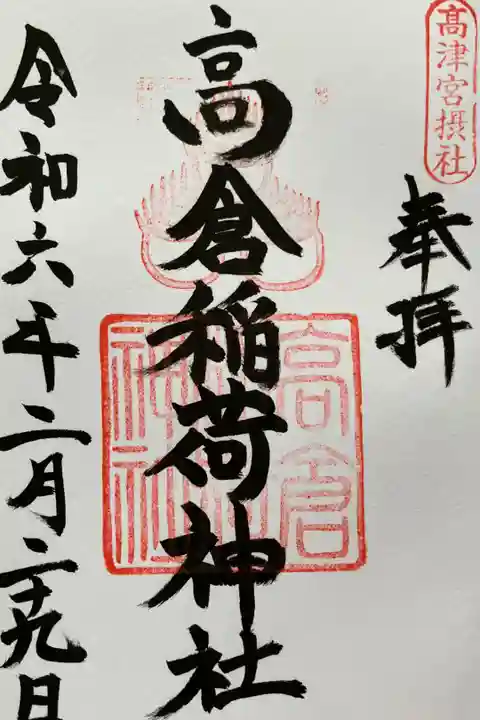 髙津宮摂社
奉拝
高倉稲荷神社
高倉
神社
令和六年二月二十九日